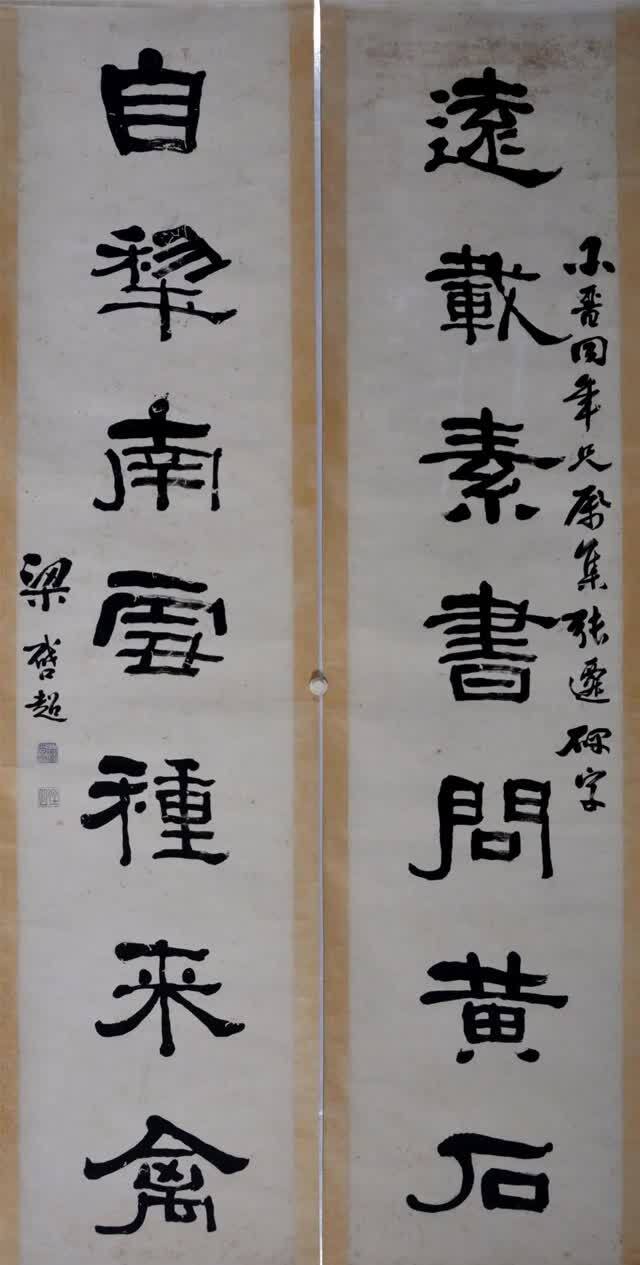 晉同年兄屬集張遷碑字
遠載素書問黃石
自犂南雲種来禽
梁啓超